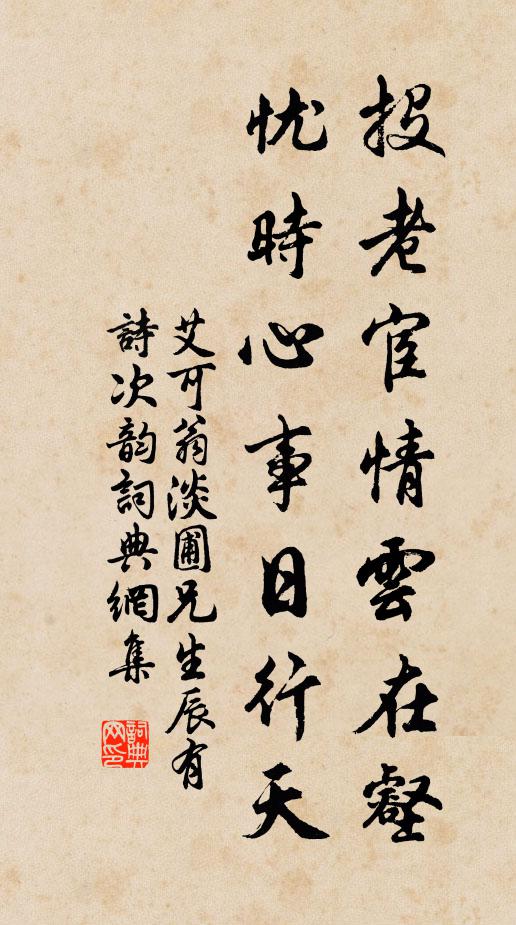 投老宦情雲在壑
忧時心事日行天
艾可翁淡圃兄生辰有
詩次韵詞典網集
詞典网印